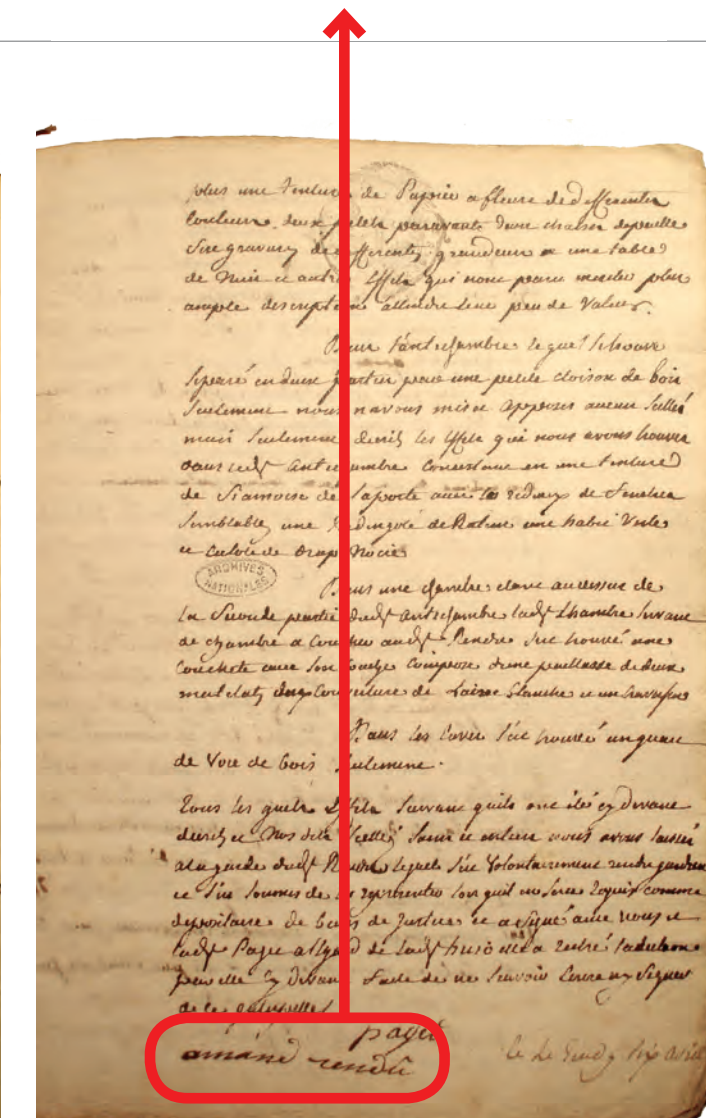 plus une Tenture de Papier a fleurs de differentes
Couleurs. deux petits paravants dune chaise depaille
Six gravures de differentes grandeurs et une table
de Nuit et autres Effets qui nont paru meriter plus
ample description attendu leur peu de Valeur.
Dans Lantichambre lequel se trouve
Separé en deux parties par une petite cloison de bois
Seulement nous navons mis ni apposés aucun Scellé
mais Seulement decrit les Effets qui nous avons trouvés
dans led. antichambre Consistant en une tenture
de Siamoise de la porte avec les rideaux de fenetres
Semblables une Redingote de Ratine une habit Verte
et Culote de drap Noire
ARCHIVES
NATIONALES
Dans une chambre etant au dessus de
la Seconde partie dud. antichambre lad. Chambre Servant
de chambre a Coucher aud. Rendu Sest trouvé une
Couchete avec Son Composée dune paillasse de deux
matelats Couverture de Laine blanche et un traversin
Dans les Caves Sest trouvé un quart
de Voie de bois Seulement.
Tous les quels Effets Suivant quils ont été cy devant
decrits et Nos dits Scellés Sains et entiers nous avons laissés
a la garde dud. Rendu lequel Sen Volontairement rendu gardien
et Sest Soumis de les representer lors quil en Sera requis comme
depositaire de biens de Justice et a Signé avec nous et
lad. Page a legard de lad. a declaré
pour elle cy devant de ne Savoir Ecrire ny Signer
de ce
page
amand rendu
Le Gendre